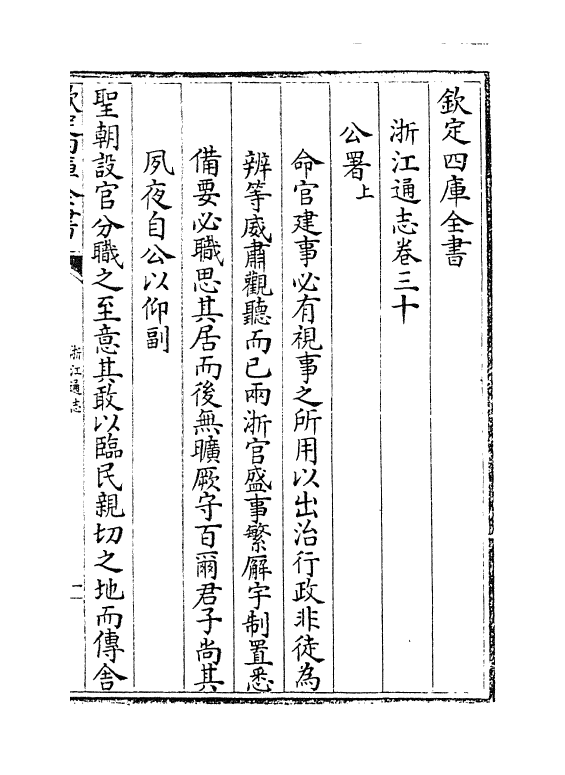 欽定四庫全書
浙江通志卷三十
公署上
命官建事必有視事之所用以出治行政非徒為
辨等威肅觀聽而已兩浙官盛事繁廨宇制置悉
備要必職思其居而後無曠厥守百爾君子尚其
夙夜自公以仰副
聖朝設官分職之至意其敢以臨民親切之地而傳舍
欽定四庫全書
浙江通志